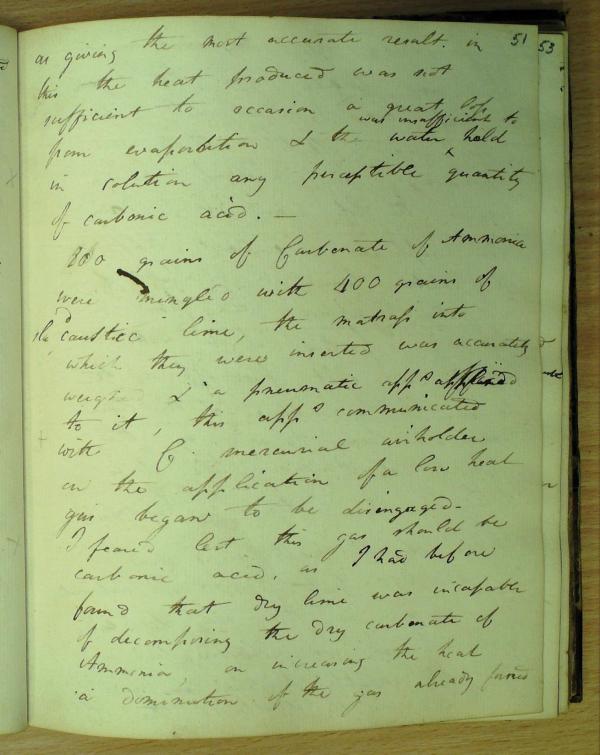 51
53
as giving the most accurate result. in
this the heat produced was not
sufficient to occasion a great loss
was insufficient to
from evaporation & the water hold
in solution any perceptible quantity
of carbonic acid. —
800 grains of Carbonate of Ammonia
were mingled with 400 grains of
caustic lime, the matrass into
which they were inserted was accurately
weighd & a pneumatic appˢ
to it, this appˢ communicated
with mercurial airholder
on the application of a low heat
gas began to be disengaged –
I feared lest this gas should be
carbonic acid, as I had before
found that dry lime was incapable
of decomposing the dry carbonate of
Ammonia, on increasing the heat
a dominution of the gas already formed